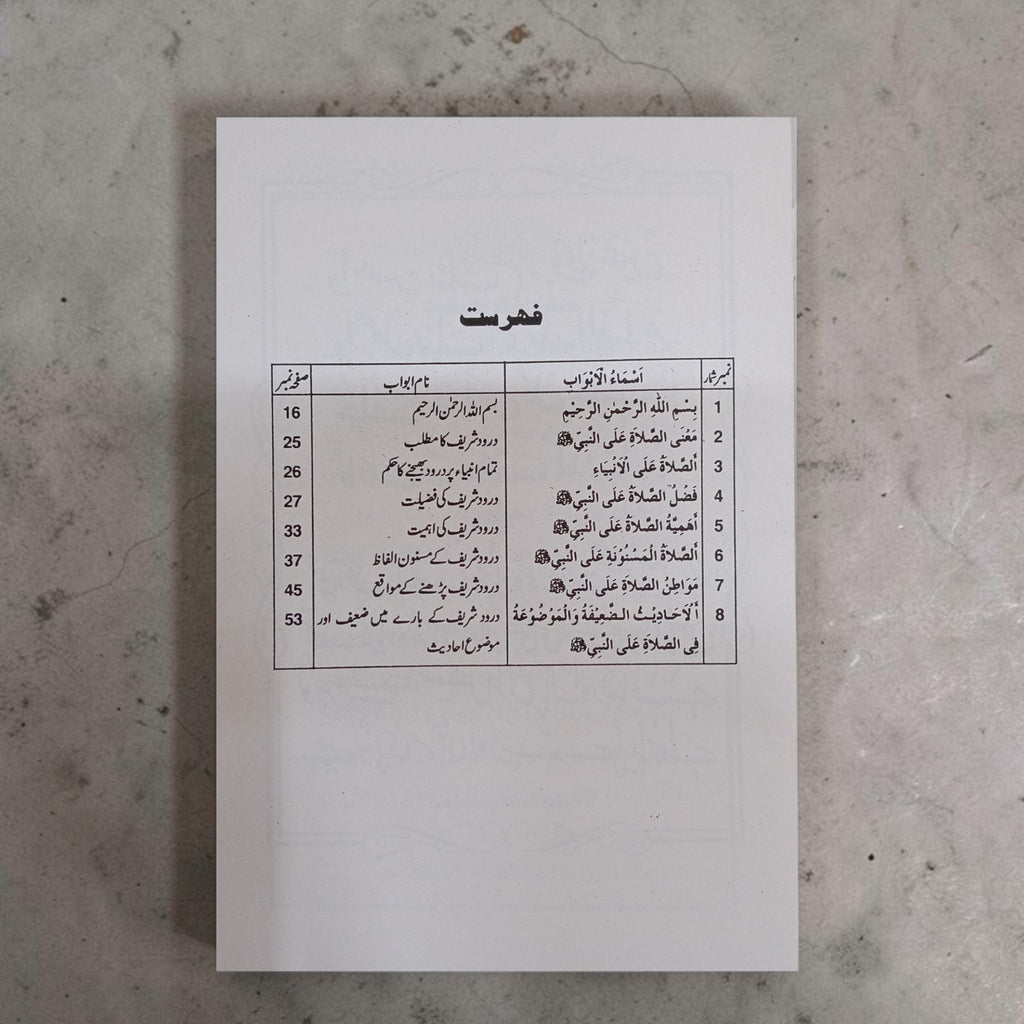 فهرست
نمبر شمار اَسْمَاءُ الْاَبْوَاب نام ابواب صفحہ نمبر
1 بِسْمِ اللّٰهِ الرَّحْمٰنِ الرَّحِيْمِ بسم اللہ الرحمٰن الرحیم 16
2 مَعْنَى الصَّلاَةِ عَلَى النَّبِيِّ ﷺ درود شریف کا مطلب 25
3 اَلصَّلاَةُ عَلَى الْاَنْبِيَاءِ تمام انبیاء پر درود بھیجنے کا حکم 26
4 فَضْلُ الصَّلاَةِ عَلَى النَّبِيِّ ﷺ درود شریف کی فضیلت 27
5 اَهَمِيَّةُ الصَّلاَةِ عَلَى النَّبِيِّ ﷺ درود شریف کی اہمیت 33
6 اَلصَّلاَةُ الْمَسْنُوْنَةِ عَلَى النَّبِيِّ ﷺ درود شریف کے مسنون الفاظ 37
7 مَوَاطِنُ الصَّلاَةِ عَلَى النَّبِيِّ ﷺ درود شریف پڑھنے کے مواقع 45
8 اَلْاَحَادِيْثُ الضَّعِيْفَةُ وَالْمَوْضُوْعَةُ درود شریف کے بارے میں ضعیف اور 53
فِى الصَّلاَةِ عَلَى النَّبِيِّ ﷺ موضوع احادیث